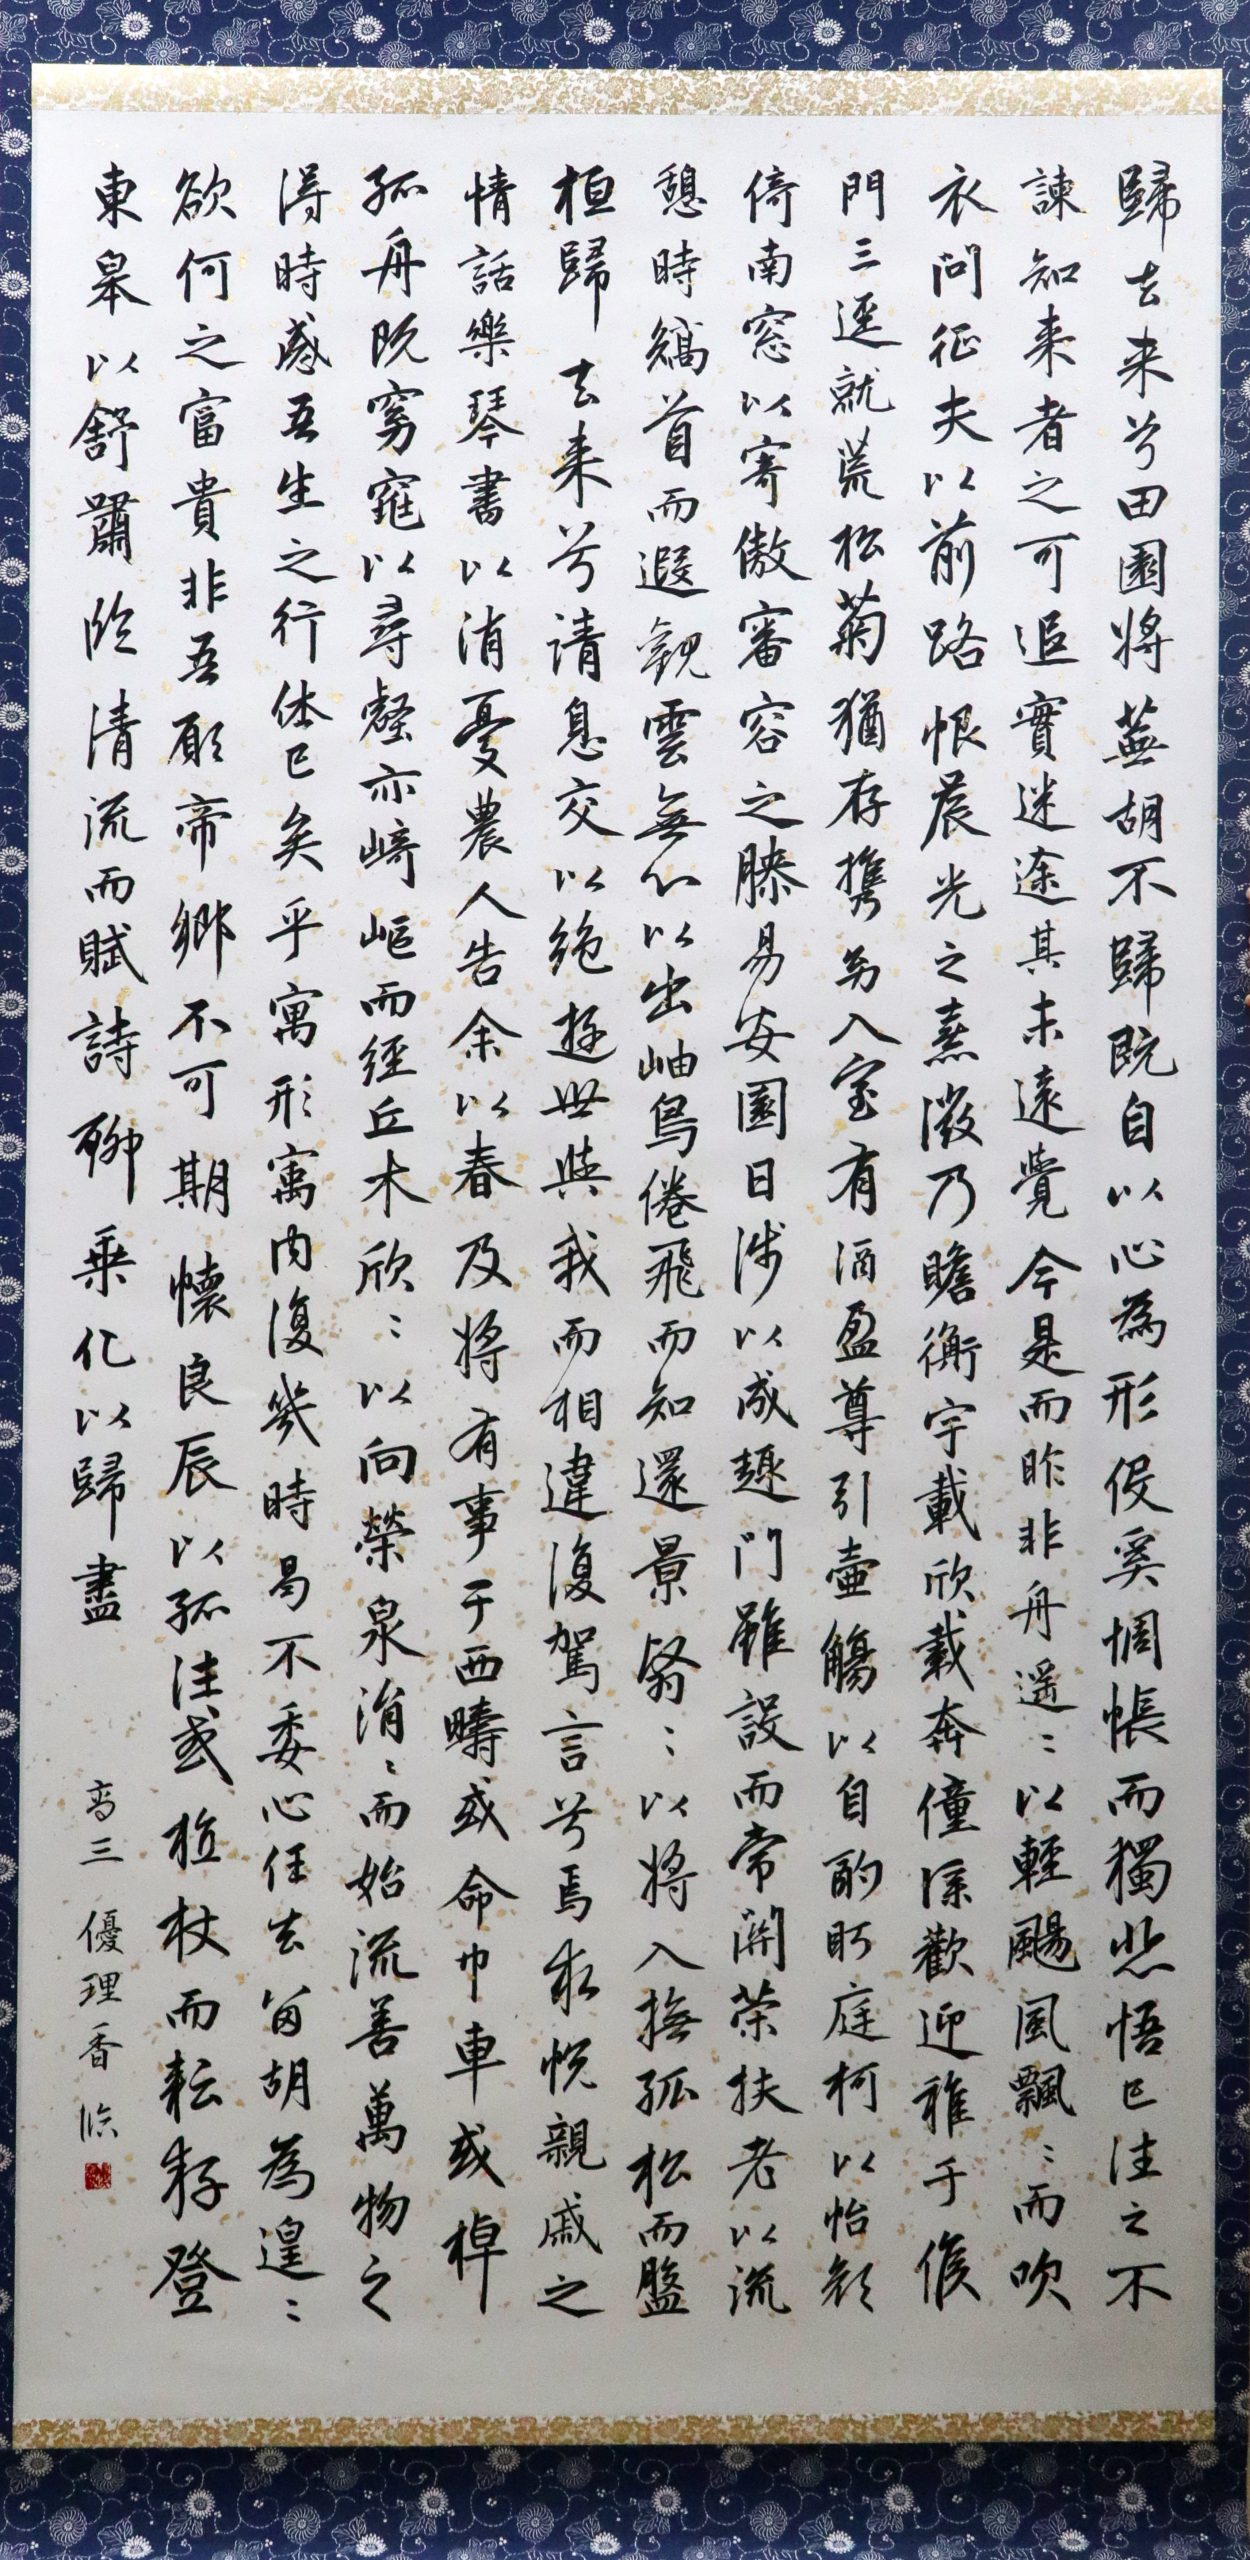 歸去来兮田園将蕪胡不歸既自以心為形役奚惆悵而獨悲悟已往之不
諫知来者之可追實迷途其未遠覺今是而昨非舟遥〻以輕颺風飄〻而吹
衣問征夫以前路恨晨光之熹微乃瞻衡宇載欣載奔僮僕歡迎稚子候
門三逕就荒松菊猶存携幼入室有酒盈尊引壷觴以自酌眄庭柯以怡顔
倚南窓以寄傲審容之膝易安園日渉以成趣門雖設而常開策扶老以流
憩時矯首而遐観雲無心以出岫鳥倦飛而知還景翳〻以将入撫孤松而盤
桓歸去来兮請息交以絶遊世與我而相違復駕言兮焉求悦親戚之
情話樂琴書以消憂農人告余以春及将有事于西疇或命巾車或棹
孤舟既窈窕以尋壑亦崎嶇而經丘木欣〻以向榮泉涓〻而始流善萬物之
得時感吾生之行休已矣乎寓形寓内復幾時曷不委心任去留胡為遑〻
欲何之富貴非吾願帝郷不可期懐良辰以孤往或植杖而耘耔登
東皋以舒嘯臨清流而賦詩聊乗化以歸盡
高三 優理香 臨